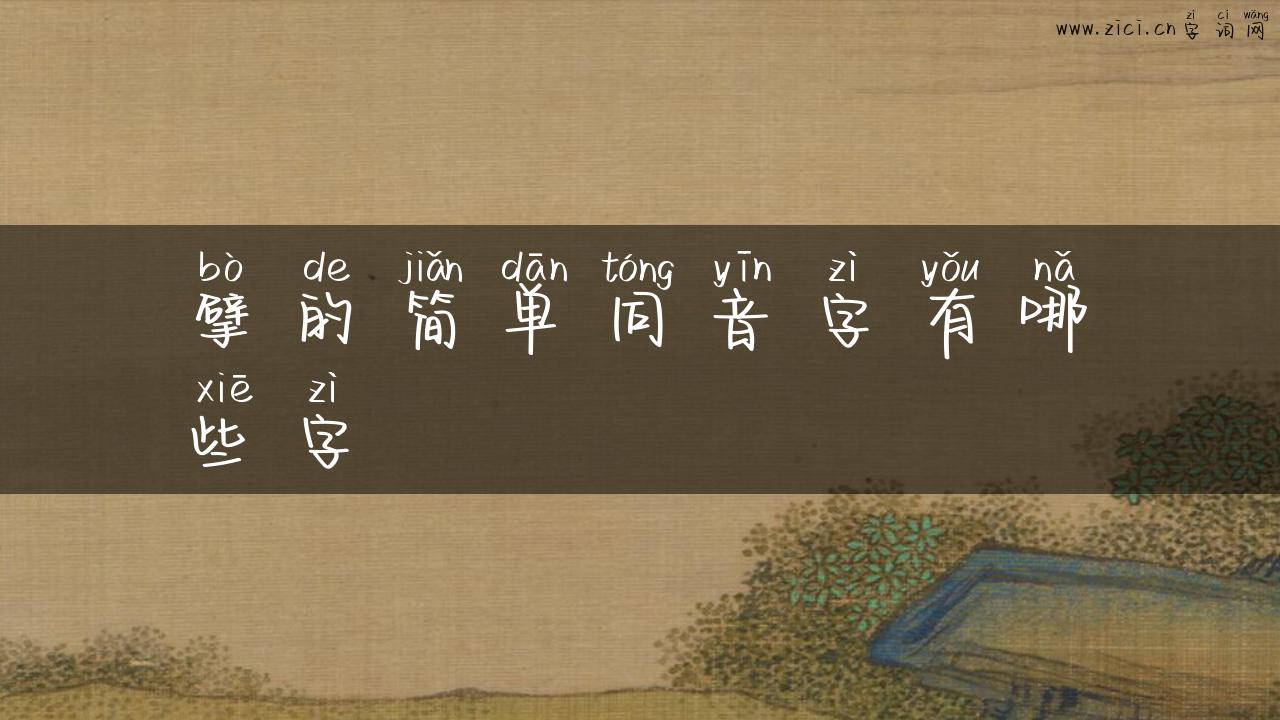 zì cí wǎng
www.zici.cn 字词网
bò de jiǎn dān tóng yīn zì yǒu nǎ
擘的简单同音字有哪
xiē zì
些字